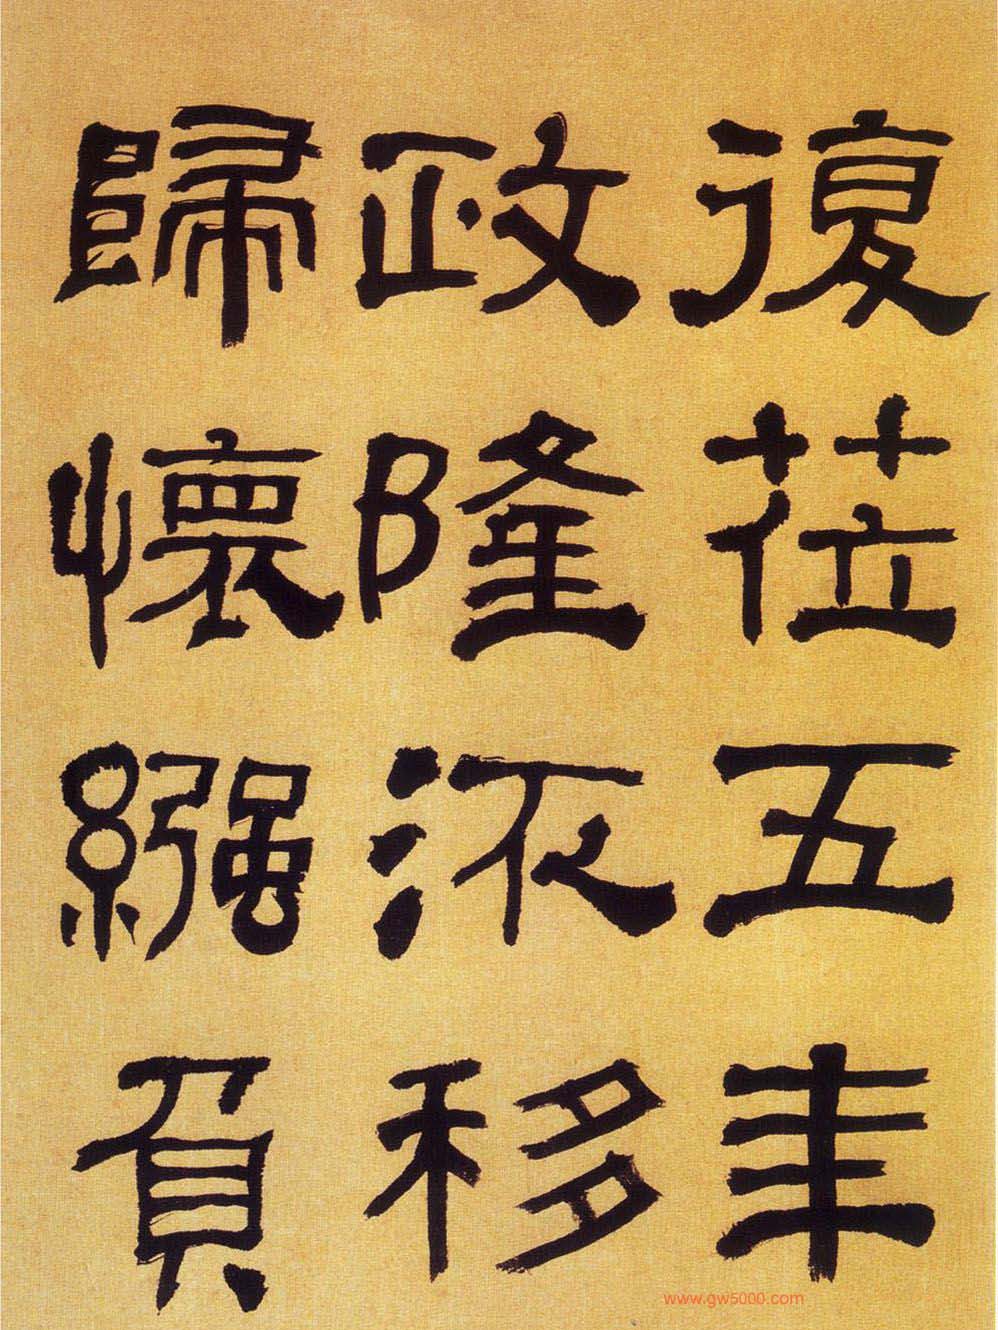 復莅五年
政隆汦移
歸懷繈負
www.gw5000.com